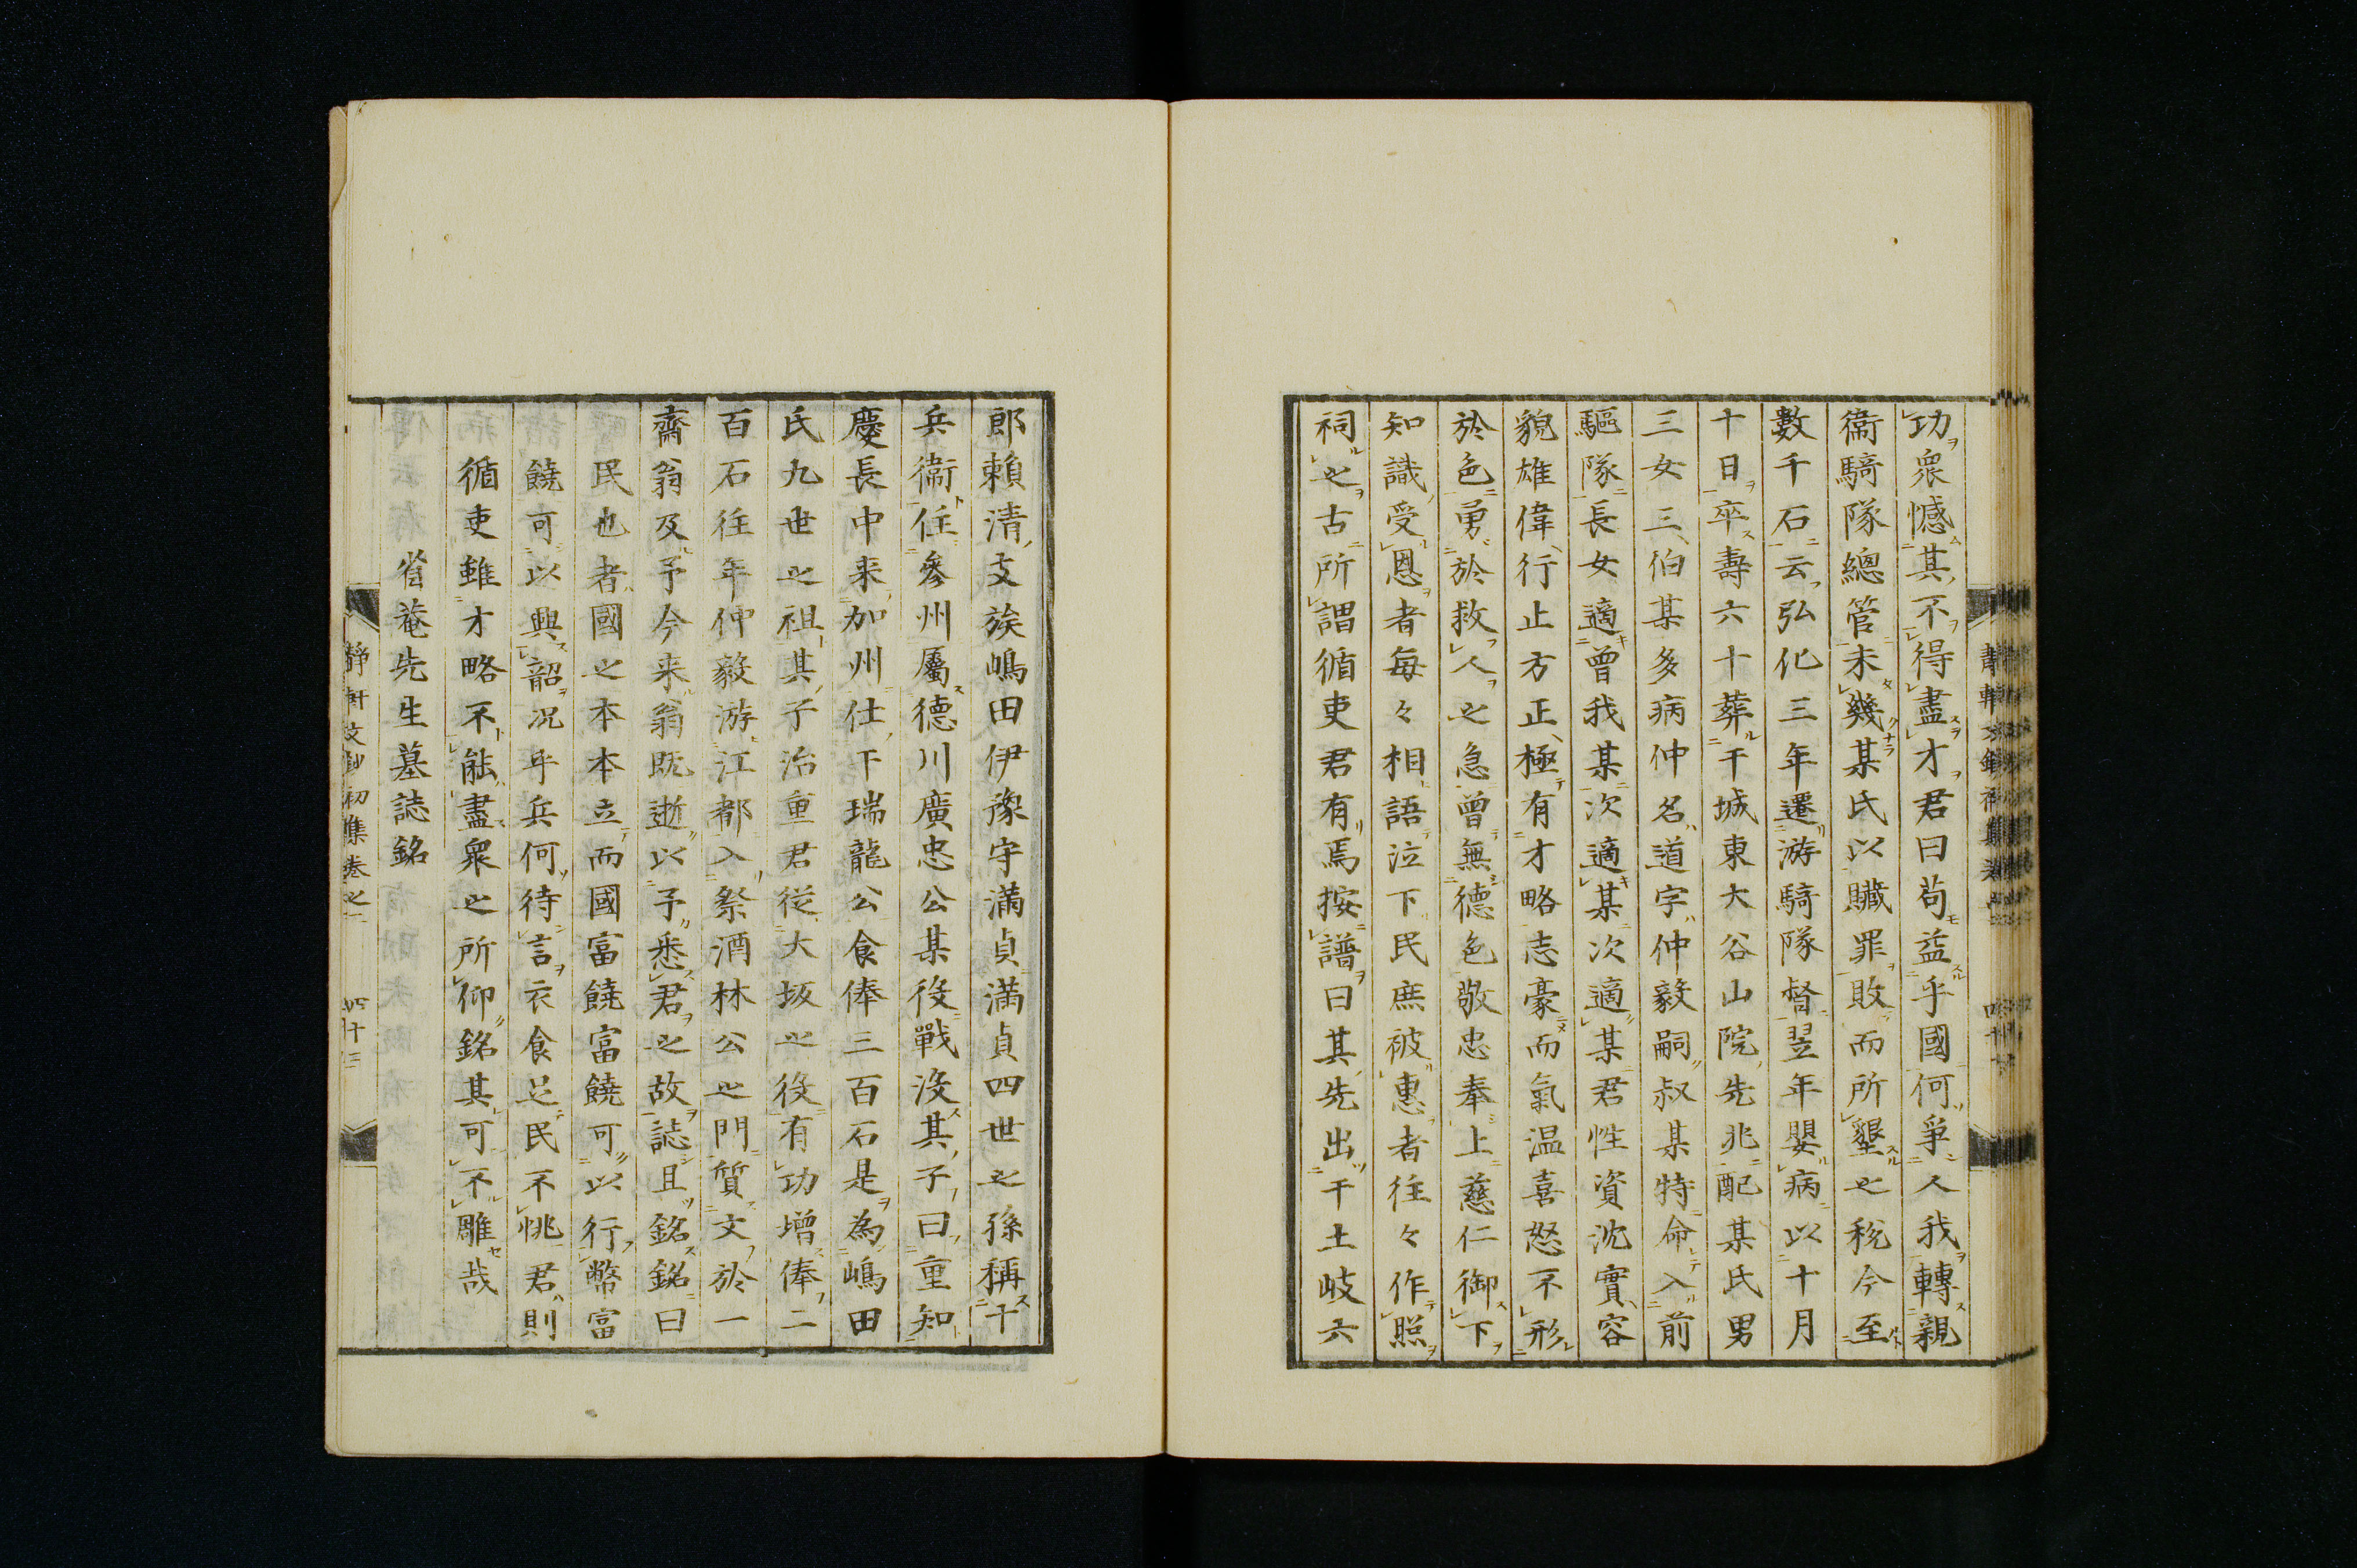 功衆憾其不得盡才君曰苟益乎國何爭人我轉親
衞騎隊總管未幾某氏以贓罪敗而所墾之税今至
數千石云弘化三年遷游騎隊督翌年嬰病以十月
十日卒壽六十葬于城東大谷山院先兆配某氏男
三女三伯某多病仲名道字仲毅嗣叔某特命入前
驅隊長女適曾我某次適某次適某君性資沈實容
貌雄偉行止方正極有才略志豪而氣温喜怒不形
於色勇於救人之急曾無德色敬忠奉上慈仁御下
知識受恩者每々相語泣下民庶被惠者往々作照
祠之古所謂循吏君有焉按譜曰其先出于土岐六
郎賴清支族嶋田伊豫守滿貞滿貞四世之孫稱十
兵衞住參州屬德川廣忠公某役戰沒其子曰重知
慶長中来加州仕下瑞龍公食俸三百石是為嶋田
氏九世之祖其子治重君従大坂之役有功增俸二
百石往年仲毅游江都入祭酒林公之門質文於一
齋翁及予今来翁既逝以予悉君之故誌且銘銘曰
民也者國之本本立而國富饒富饒可以行幣富
饒可以興韶況乎兵何待言衣食足民不恌君則
循吏雖才略不能盡衆之所仰銘其可不雕哉
省菴先生墓誌銘
靜軒文鈔初集卷之二 四十三